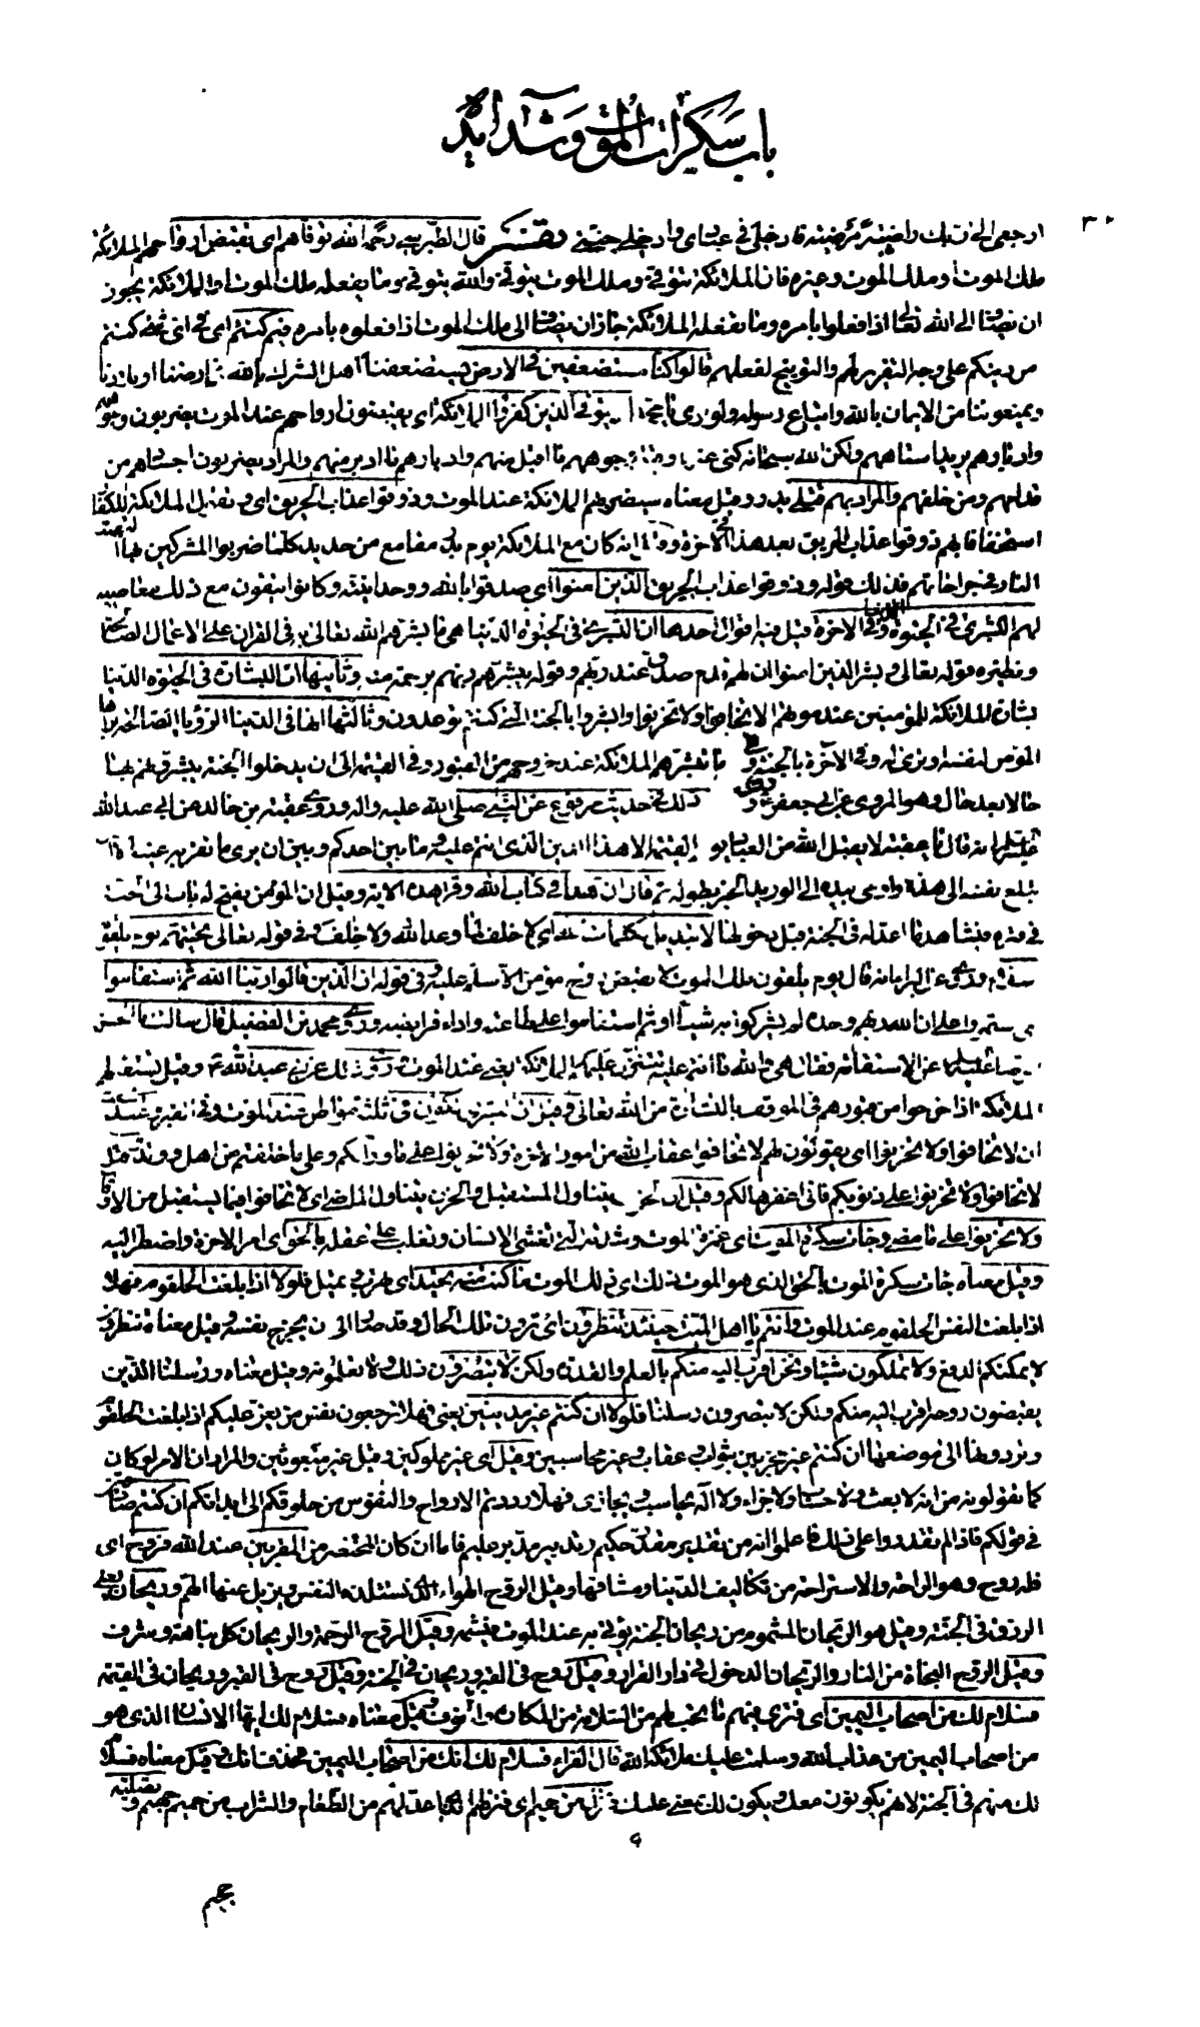 باب سكرات الموت وشدائده
٣٠
ارجعي الى ربك راضية مرضية فادخلي في عبادي وادخلي جنتي تفسير قال الطبرسي رحمه الله توفاهم اى تقبض ارواحهم الملائكة
ملك الموت او ملك الموت وغيره فان الملائكة تتوفى وملك الموت يتوفى والله يتوفى وما يفعله ملك الموت او الملائكة يجوز
ان يضاف الى الله تعالى اذا فعلوا بامره وما تفعله الملائكة جاز ان يضاف الى ملك الموت اذا فعلوه بامره فيم كنتم اى في اى شئ كنتم
من دينكم على وجه التقرير لهم والتوبيخ لفعلهم قالوا كنا مستضعفين في الارض يستضعفنا اهل الشرك بالله في ارضنا وبلادنا
ويمنعوننا من الايمان بالله واتباع رسوله ولو ترى يا محمد اذ يتوفى الذين كفروا الملائكة اى يقبضون ارواحهم عند الموت يضربون وجوههم
وادبارهم يريد استاههم ولكن الله سبحانه كنى عنها وقيل وجوههم ما اقبل منهم وادبارهم ما ادبر منهم والمراد يضربون اجسادهم من
قدامهم ومن خلفهم والمراد بهم قتلى بدر وقيل معناه سيضربهم الملائكة عند الموت وذوقوا عذاب الحريق اى وتقول الملائكة للكفار
استخفافا بهم ذوقوا عذاب الحريق بعد هذا في الاخرة وقيل انه كان مع الملائكة يوم بدر مقامع من حديد كلما ضربوا المشركين بها التهبت
النار في جراحاتهم فذلك قوله وذوقوا عذاب الحريق الذين امنوا اى صدقوا بالله ووحدانيته وكانوا يتقون مع ذلك معاصيه
لهم البشرى في الحيوة الدنيا وفي الاخرة قيل فيه اقوال احدها ان البشرى في الحيوة الدنيا هي ما بشرهم الله تعالى به في القران على الاعمال الصالحة
ونظيره قوله تعالى وبشر الذين امنوا ان لهم قدم صدق عند ربهم وقوله يبشرهم ربهم برحمة منه وثانيها ان البشارة في الحيوة الدنيا
بشارة الملائكة للمؤمنين عند موتهم الا تخافوا ولا تحزنوا وابشروا بالجنة التي كنتم توعدون وثالثها انها في الدنيا الرؤيا الصالحة يراها
المؤمن لنفسه او ترى له وفي الآخرة بالجنة وهي ما تبشرهم الملائكة عند خروجهم من القبور وفي القيمة الى ان يدخلوا الجنة يبشرونهم بها
حالا بعد حال وهو المروى عن ابي جعفر وروى ذلك في حديث مرفوع عن النبي صلى الله عليه واله وروى عقبة بن خالد عن ابي عبد الله
انه قال يا عقبة لا يقبل الله من العباد يوم القيمة الا هذا الدين الذى انتم عليه وما بين احدكم وبين ان يرى ما تقر به عينه الا ان
تبلغ نفسه الى هذه واومى بيده الى الوريد الخبر بطوله ثم قال ان هذا في كتاب الله وقرأ هذه الاية وقيل ان المؤمن يفتح له باب الى الجنة
في قبره فيشاهد ما اعد له في الجنة قبل دخولها لا تبديل لكلمات الله اى لا خلف لما وعد الله ولا خلاف وفي قوله تعالى تحيتهم يوم يلقونه
سلام وروى عن البراء انه قال يوم يلقون ملك الموت لا يقبض روح مؤمن الا سلم عليه وفي قوله ان الذين قالوا ربنا الله ثم استقاموا
اى استمروا على ان الله ربهم وحده لم يشركوا به شيئا او ثم استقاموا على طاعته واداء فرايضه وروى محمد بن الفضيل قال سالت ابا الحسن
الرضا عن الاستقامة فقال هي والله ما انتم عليه تتنزل عليهم الملائكة يعني عند الموت وروى ذلك عن ابي عبد الله وقيل تستقبلهم
الملائكة اذا خرجوا من قبورهم في الموقف بالبشارة من الله تعالى وقيل ان البشرى تكون في ثلثة مواطن عند الموت وفي القبر وعند البعث
ان لا تخافوا ولا تحزنوا اى يقولون لهم لا تخافوا عقاب الله من امور الاخرة ولا تحزنوا على ما وراءكم وعلى ما خلفتم من اهل وولد وقيل
لا تخافوا ولا تحزنوا على ذنوبكم فاني اغفرها لكم وقيل ان الخوف يتناول المستقبل والحزن يتناول الماضي اى لا تخافوا فيما يستقبل من الاوقات
ولا تحزنوا على ما مضى وجاءت سكرة الموت اى غمرة الموت وشدته التي تغشى الانسان وتغلب على عقله بالحق اى امر الاخرة واضطر اليه
وقيل معناه جاءت سكرة الموت بالحق الذى هو الموت ذلك اى ذلك الموت ما كنت منه تحيد اى تهرب وتميل فلولا اذا بلغت الحلقوم فهلا
اذا بلغت النفس الحلقوم عند الموت وانتم يا اهل الميت حينئذ تنظرون اى ترون تلك الحال وقد صار الى ان يخرج نفسه وقيل معناه تنظرون
لا يمكنكم الدفع ولا تملكون شيئا ونحن اقرب اليه منكم بالعلم والقدرة ولكن لا تبصرون ذلك ولا تعلمونه وقيل معناه ورسلنا الذين
يقبضون روحه اقرب اليه منكم ولكن لا تبصرون رسلنا فلولا ان كنتم غير مدينين يعني فهلا ترجعون نفس من يعز عليكم اذا بلغت الحلقوم
وتردونها الى موضعها ان كنتم غير مجزيين بثواب وعقاب وغير محاسبين وقيل اى غير مملوكين وقيل غير مبعوثين والمراد ان الامر لو كان
كما تقولونه من انه لا بعث ولا حساب ولا جزاء ولا اله يحاسب ويجازى فهلا رددتم الارواح والنفوس من حلوقكم الى ابدانكم ان كنتم صادقين
في قولكم فاذا لم تقدروا على ذلك فاعلموا انه من تقدير مقدر حكيم وتدبير مدبر عليم فاما ان كان المحتضر من المقربين عند الله فروح اى
فله روح وهو الراحة والاستراحة من تكاليف الدنيا ومشاقها وقيل الروح الهواء الذى تستلذه النفس ويزيل عنها الهم وريحان يعنى
الرزق في الجنة وقيل هو الريحان المشموم من ريحان الجنة يؤتى به عند الموت فيشمه وقيل الروح الرحمة والريحان كل نباهة وشرف
وقيل الروح النجاة من النار والريحان الدخول في دار القرار وقيل روح في القبر وريحان في الجنة وقيل روح في القبر وريحان في القيمة
فسلام لك من اصحاب اليمين اى فترى فيهم ما تحب لهم من السلامة من المكاره والخوف وقيل معناه فسلام لك ايها الانسان الذى هو
من اصحاب اليمين من عذاب الله وسلمت عليك ملائكة الله قال الفراء فسلام لك انك من اصحاب اليمين فحذف انك وقيل معناه فسلام
لك منهم في الجنة لانهم يكونون معك ويكون لك بمعنى عليك فنزل من حميم اى فنزلهم الذى اعد لهم من الطعام والشراب من حميم جهنم وتصلية
جحيم